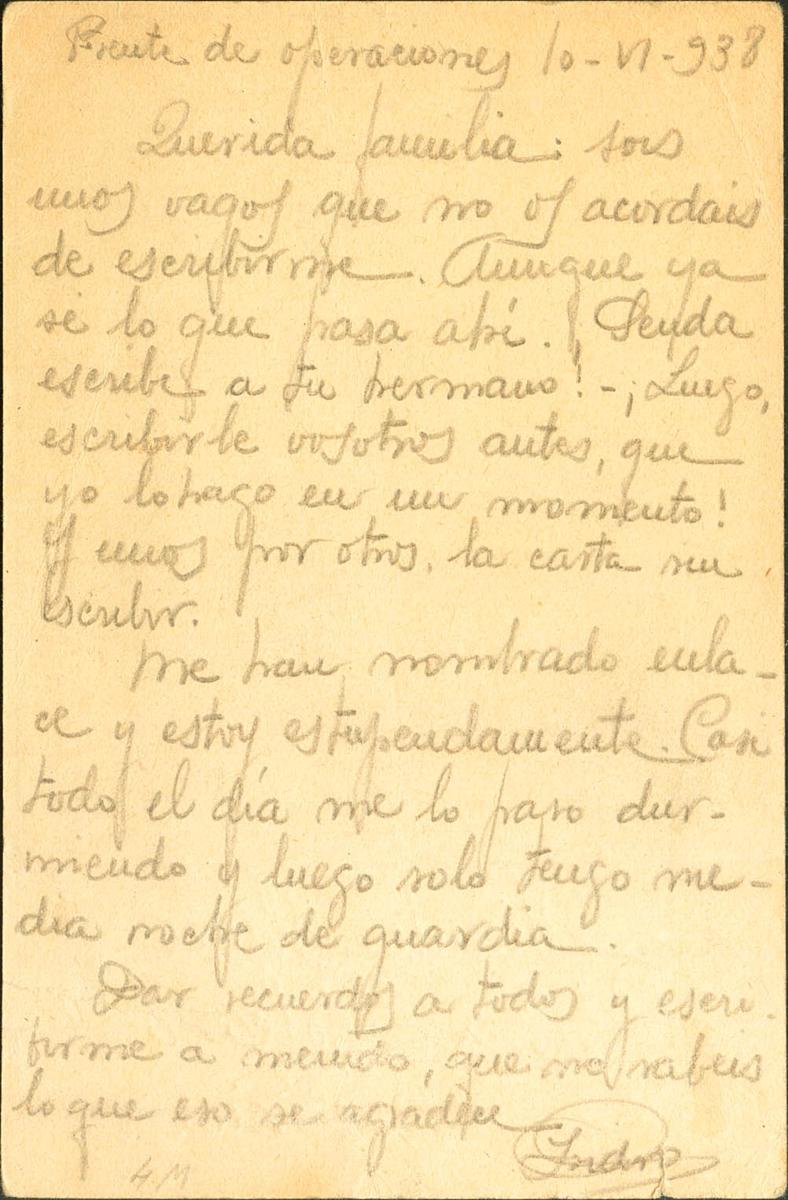 Frente de operaciones 10-VI-938
Querida familia: sois
unos vagos que no os acordais
de escribirme. Aunque ya
se lo que pasa ahí. ¡
escribe a tu hermano! -¡Luego,
escribirle vosotros antes, que
yo lo hago en un momento!
Y unos por otros, la carta sin
escribir.
Me han nombrado enla-
ce y estoy estupendamente. Casi
todo el día me lo paso dur-
miendo y luego solo tengo me-
dia noche de guardia.
Dar recuerdos a todos y escri-
birme a menudo, que no sabeis
lo que eso se agradece
4M